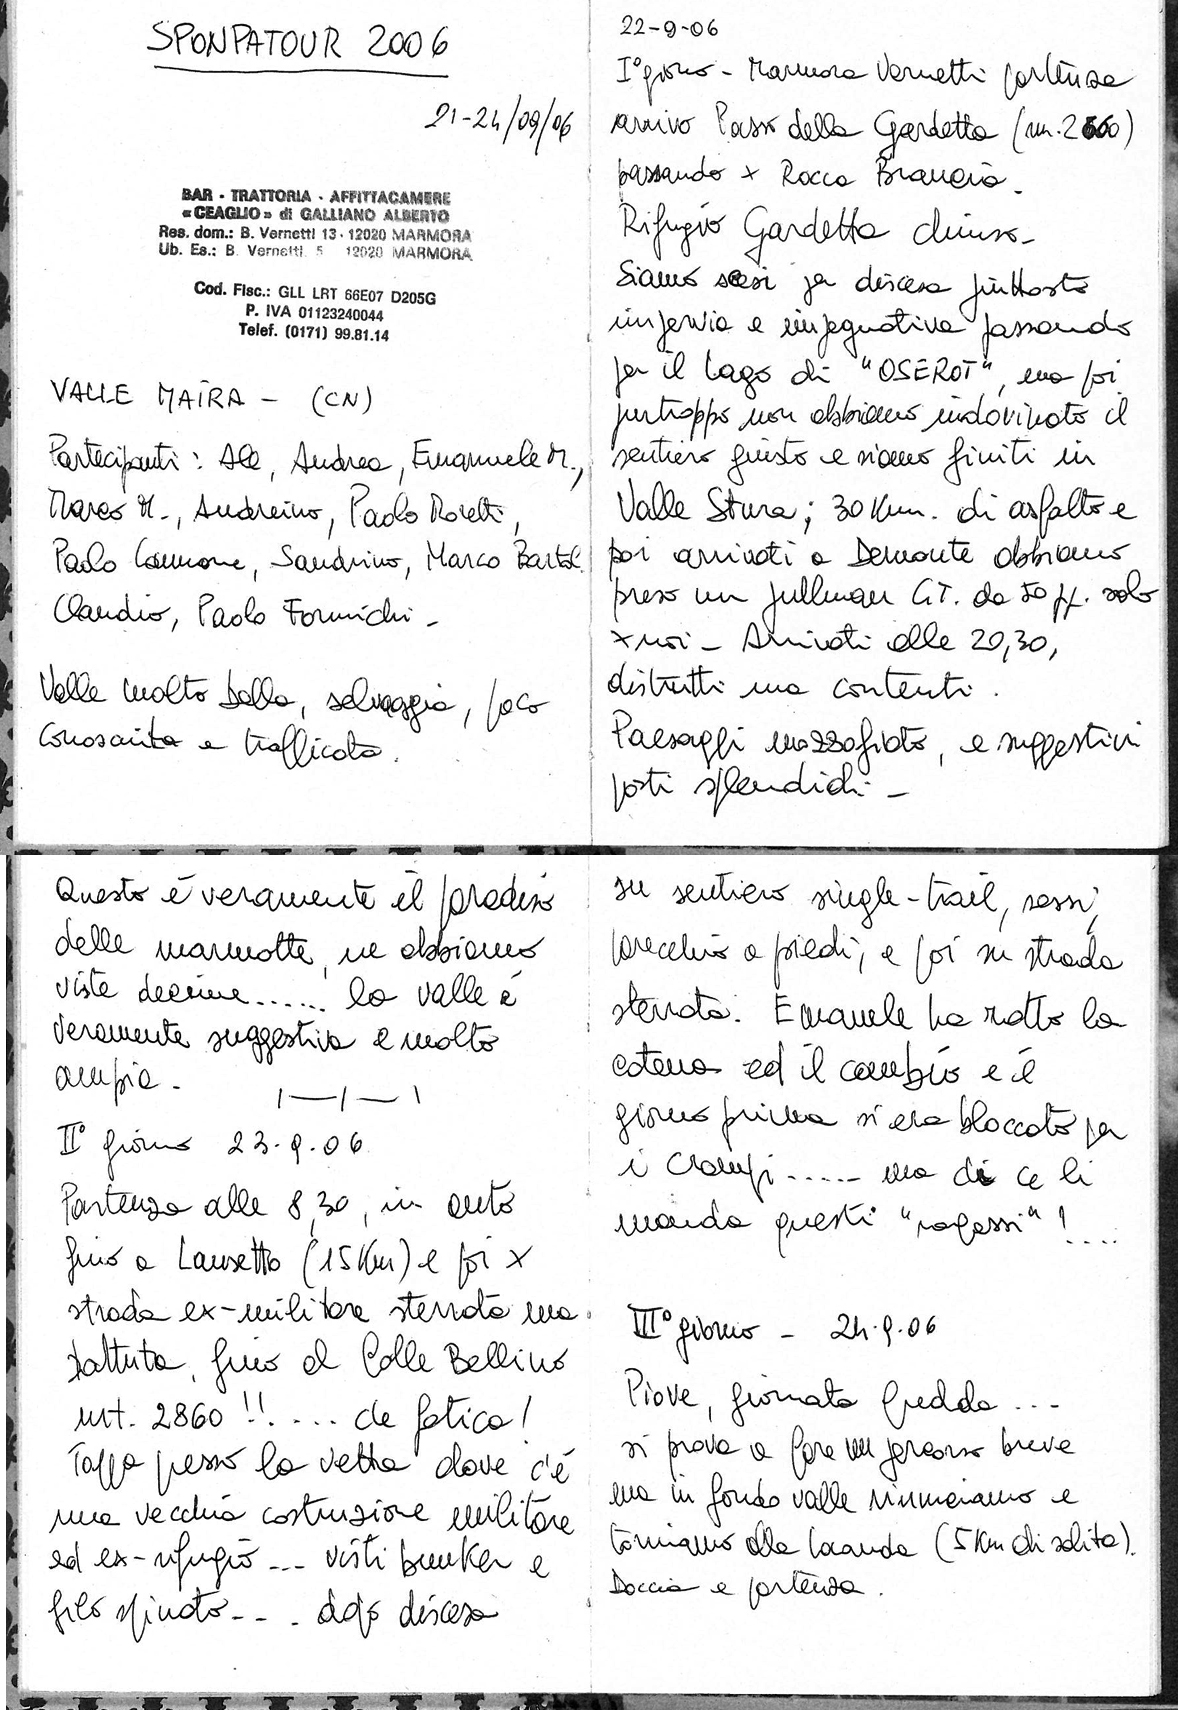 SPONPATOUR 2006
21-24/09/06
BAR - TRATTORIA - AFFITTACAMERE
«CEAGLIO» di GALLIANO ALBERTO
Res. dom.: B. Vernetti 13 - 12020 MARMORA
Ub. Es.: B. Vernetti 5 12020 MARMORA
Cod. Fisc.: GLL LRT 66E07 D205G
P. IVA 01123240044
Telef. (0171) 99.81.14
VALLE MAIRA - (CN)
Partecipanti: Ale, Andrea, Emanuele M.,
Marco M., Andreino, Paolo
Paolo Cannone, Sandrino, Marco Bartol.
Claudio, Paolo Formichi -
Valle molto bella, selvaggia, poco
conosciuta e trafficata.
22-9-06
I° giorno - Marmora Vernetti partenza
arrivo Passo della Gardetta (m.)
passando x Rocca Brancia.
Rifugio Gardetta chiuso-
Siamo scesi per discesa piuttosto
impervia e impegnativa passando
per il lago di "OSEROT", ma poi
purtroppo non abbiamo indovinato il
sentiero giusto e siamo finiti in
Valle Stura; 30 Km. di asfalto e
poi arrivati a Demonte abbiamo
preso un pullman GT. da 50 pp. solo
x noi - Arrivati alle 20,30,
distrutti ma contenti.
Paesaggi mozzafiato, e suggestivi
posti splendidi -
Questo è veramente il paradiso
delle marmotte, ne abbiamo
viste decine...... la valle è
veramente suggestiva e molto
ampia.
II° giorno 23.9.06
Partenza alle 8,30, in auto
fino a Lausetto (15 Km) e poi x
strada ex-militare sterrata ma
battuta, fino al Colle Bellino
mt. 2860 !!.... che fatica!
Tappa presso la vetta dove c'è
una vecchia costruzione militare
ed ex-rifugio... visti bunker e
filo spinato... dopo discesa
su sentiero single-trail, sassi,
parecchio a piedi, e poi su strada
sterrata. Emanuele ha rotto la
catena ed il cambio e il
giorno prima si era bloccato per
i crampi..... ma chi ce li
manda questi "ragassi"!....
III° giorno - 24.9.06
Piove, giornata fredda...
si prova a fare un percorso breve
ma in fondo valle rinunciamo e
torniamo alla locanda (5 Km di salita).
Doccia e partenza.